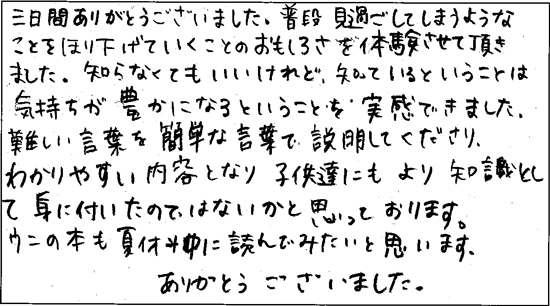 三日間ありがとうございました。普段見過ごしてしまうような
ことをほり下げていくことのおもしろさを体験させて頂き
ました。知らなくてもいいけれど、知っているということは
気持ちが豊かになるということを実感できました。
難しい言葉を簡単な言葉で説明してくださり、
わかりやすい内容となり子供達にもより知識とし
て身に付いたのではないかと思っております。
ウニの本も夏休み中に読んでみたいと思います。
ありがとうございました。